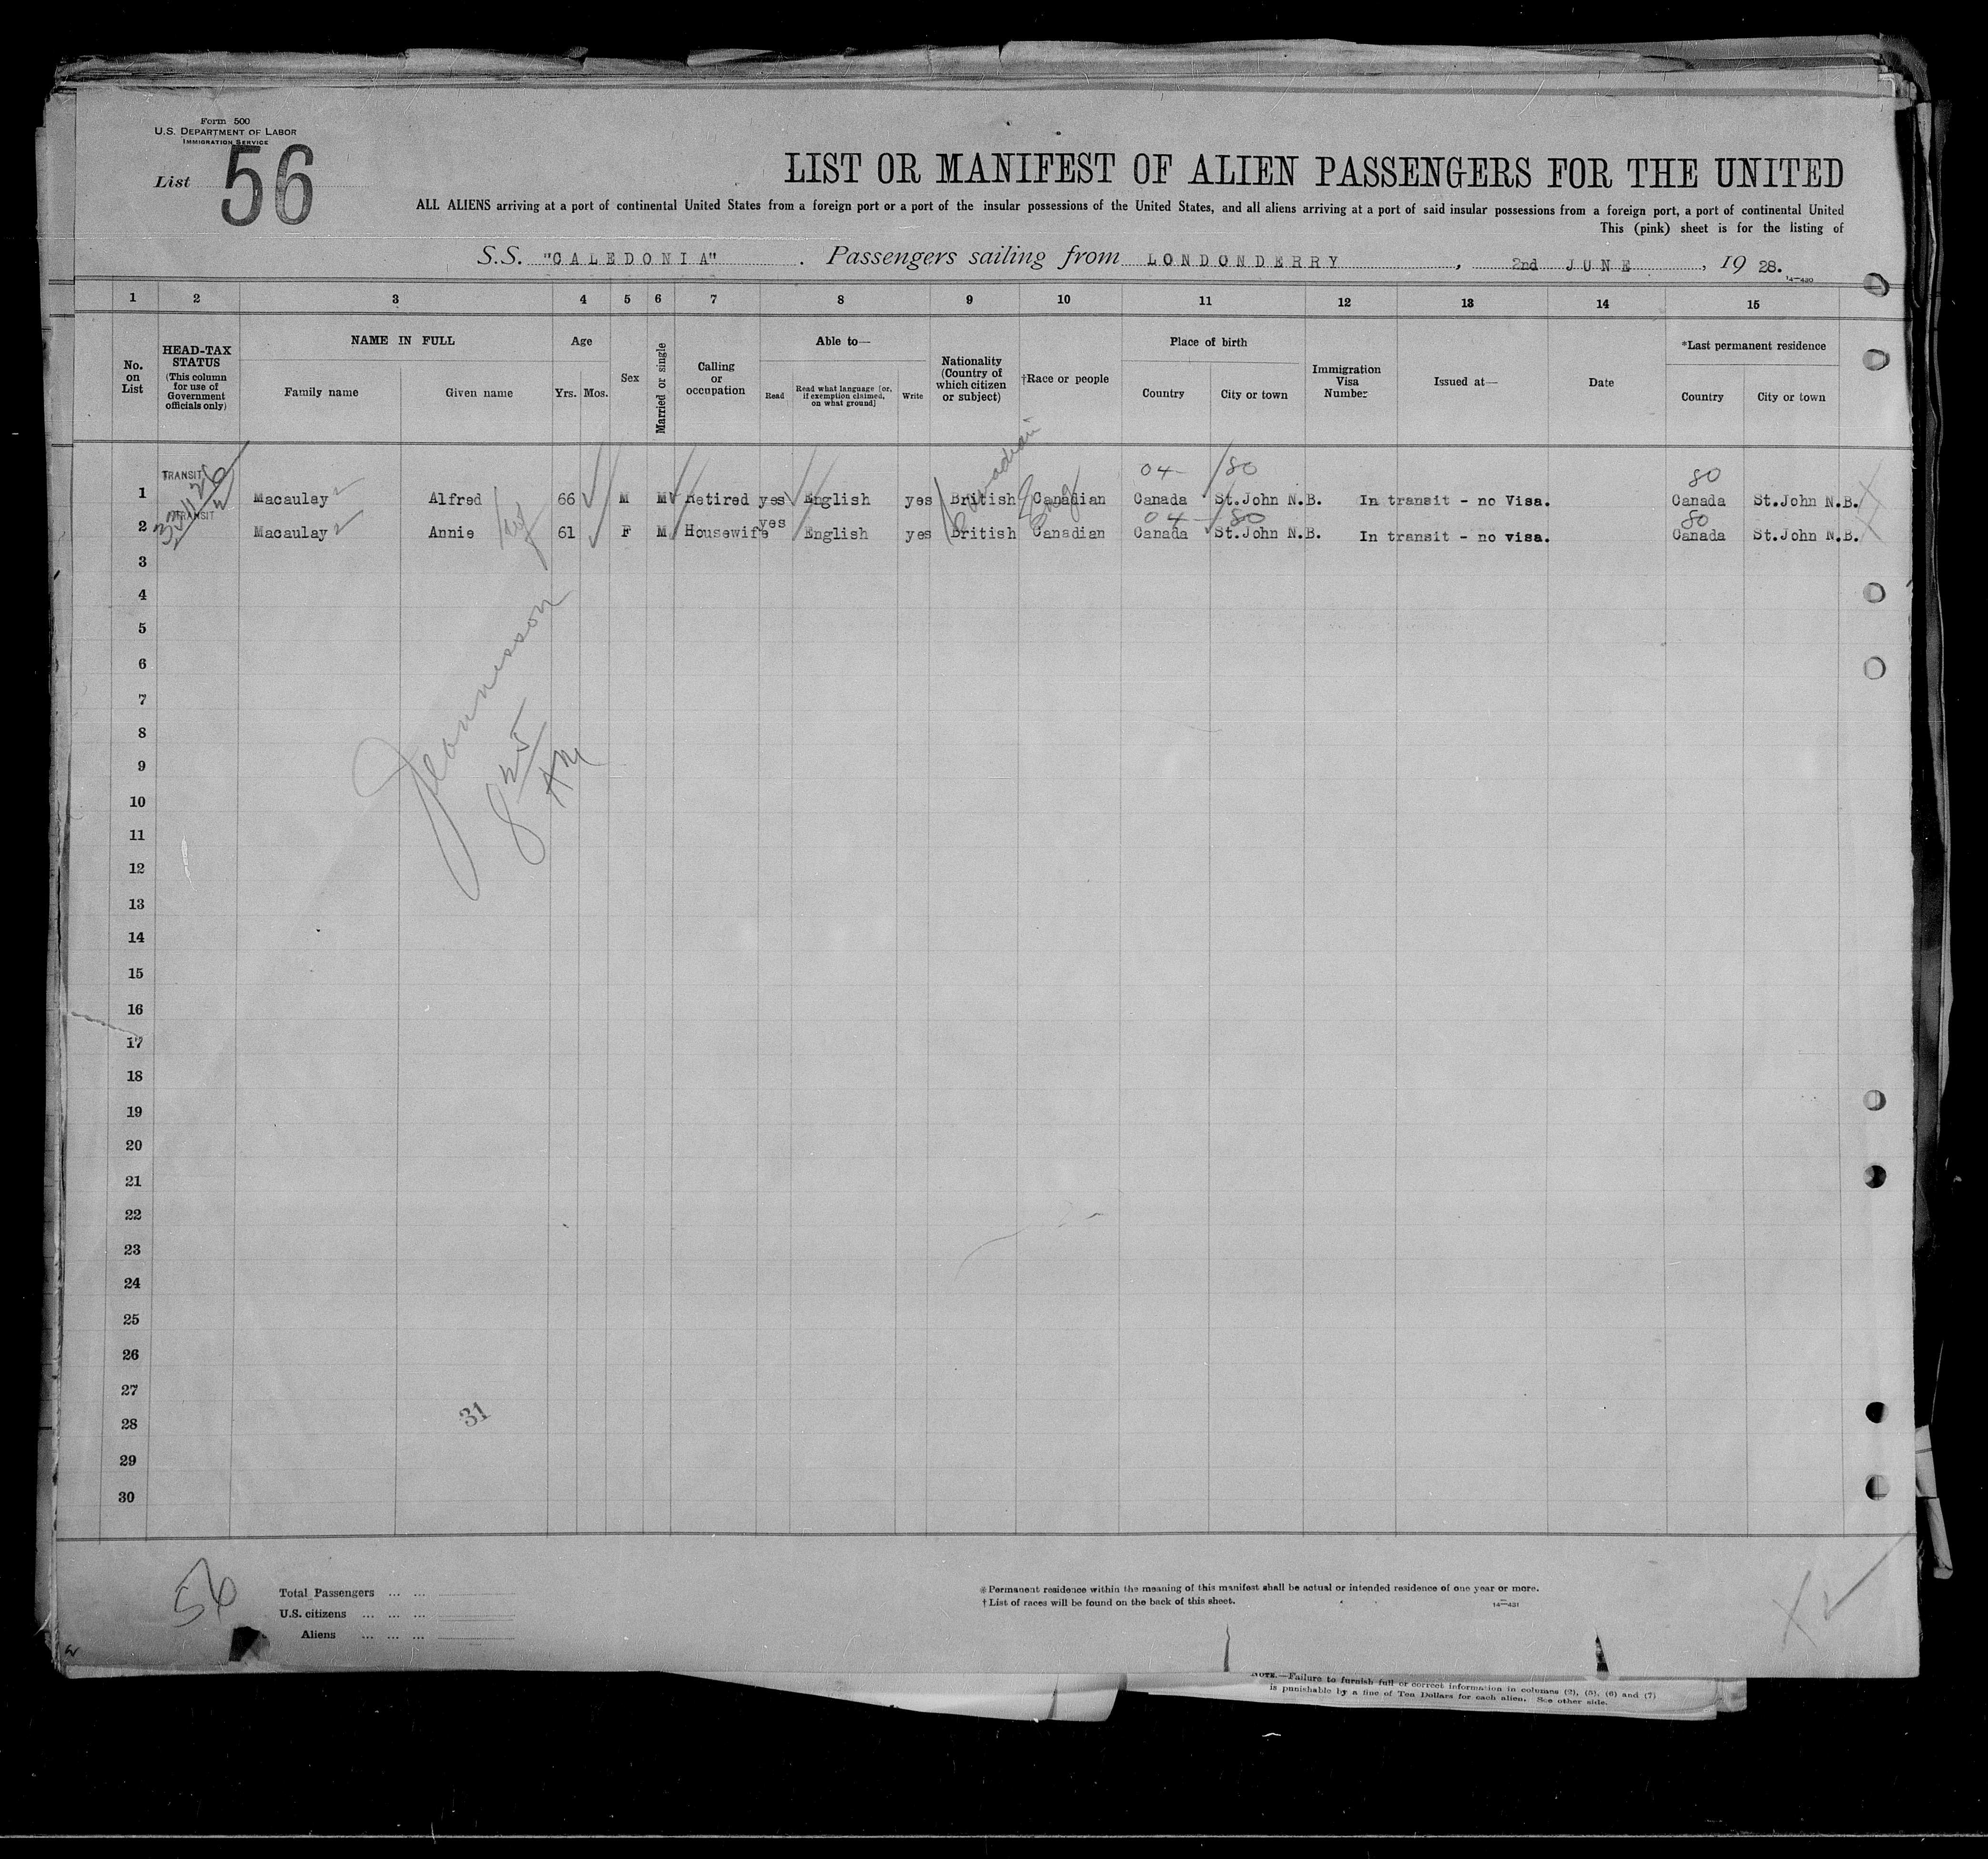 Form 500
U.S. DEPARTMENT OF LABOR
IMMIGRATION SERVICE
List 56
LIST OR MANIFEST OF ALIEN PASSENGERS FOR THE UNITED
ALL ALIENS arriving at a port of continental United States from a foreign port or a port of the insular possessions of the United States, and all aliens arriving at a port of said insular possessions from a foreign port, a port of continental United
This (pink) sheet is for the listing of
S.S. "CALEDONIA" . Passengers sailing from LONDONDERRY , 2nd JUNE , 19 28.
14—430
1 2 3 4 5 6 7 8 9 10 11 12 13 14 15
No. on List
HEAD-TAX STATUS (This column for use of Government officials only)
NAME IN FULL
Family name
Given name
Age
Yrs. Mos.
Sex
Married or single
Calling or occupation
Able to—
Read
Read what language [or, if exemption claimed, on what ground]
Write
Nationality (Country of which citizen or subject)
†Race or people
Place of birth
Country
City or town
Immigration Visa Number
Issued at—
Date
*Last permanent residence
Country
City or town
Canadian
04 80 80
TRANSIT
1 Macaulay Alfred 66 M M Retired yes English yes British Canadian Canada St.John N.B. In transit - no Visa. Canada St.John N.B.
Eng
04 80 80
TRANSIT
2 Macaulay Annie 61 F M Housewife yes English yes British Canadian Canada St.John N.B. In transit - no visa. Canada St.John N.B.
3
4
5
6
7
8
9
10
11
12
13
14
15
16
17
18
19
20
21
22
23
24
25
26
27
28
29
30
825 AM
31
56
Total Passengers ... ...
U.S. citizens ... ... ...
Aliens ... ... ...
*Permanent residence within the meaning of this manifest shall be actual or intended residence of one year or more.
†List of races will be found on the back of this sheet.
14—431
NOTE.—Failure to furnish full or correct information in columns (2), (5), (6) and (7)
is punishable by a fine of Ten Dollars for each alien. See other side.